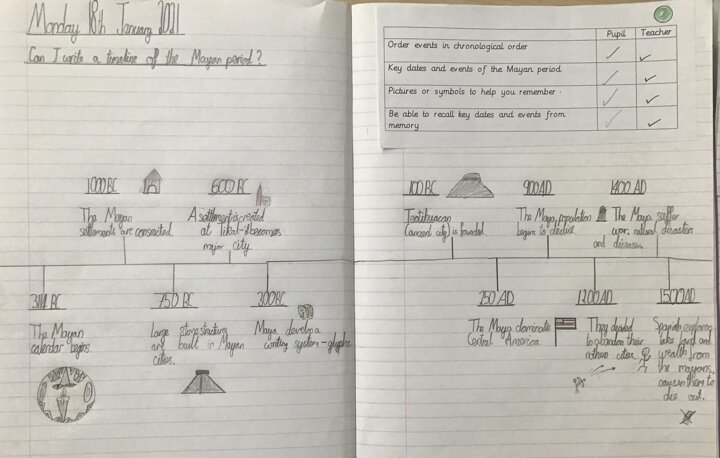 Monday 18th January 2021
Can I write a timeline of the Mayan period?
Pupil Teacher
Order events in chronological order
Key dates and events of the Mayan period
Pictures or symbols to help you remember.
Be able to recall key dates and events from
memory
1000 BC
The Mayan
settlements are connected.
600 BC
A settlement is created
at Tikal-it becomes
major city.
3114 BC
The Mayan
calendar begins
750 BC
large stone structures
are built in Mayan
cities.
300 BC
Maya develop a
writing system - glyphs
100 BC
Teotihuacan
(ancient city) is founded.
900 AD
The Maya population
begins to decline
1400 AD
The Maya suffer
war, natural disasters
and diseases.
250 AD
The Maya dominate
Central America.
1200 AD
They decided
to abandon their
cities.
1500 AD
Spanish explorers
take land and
wealth from
the mayans,
them to
die out.